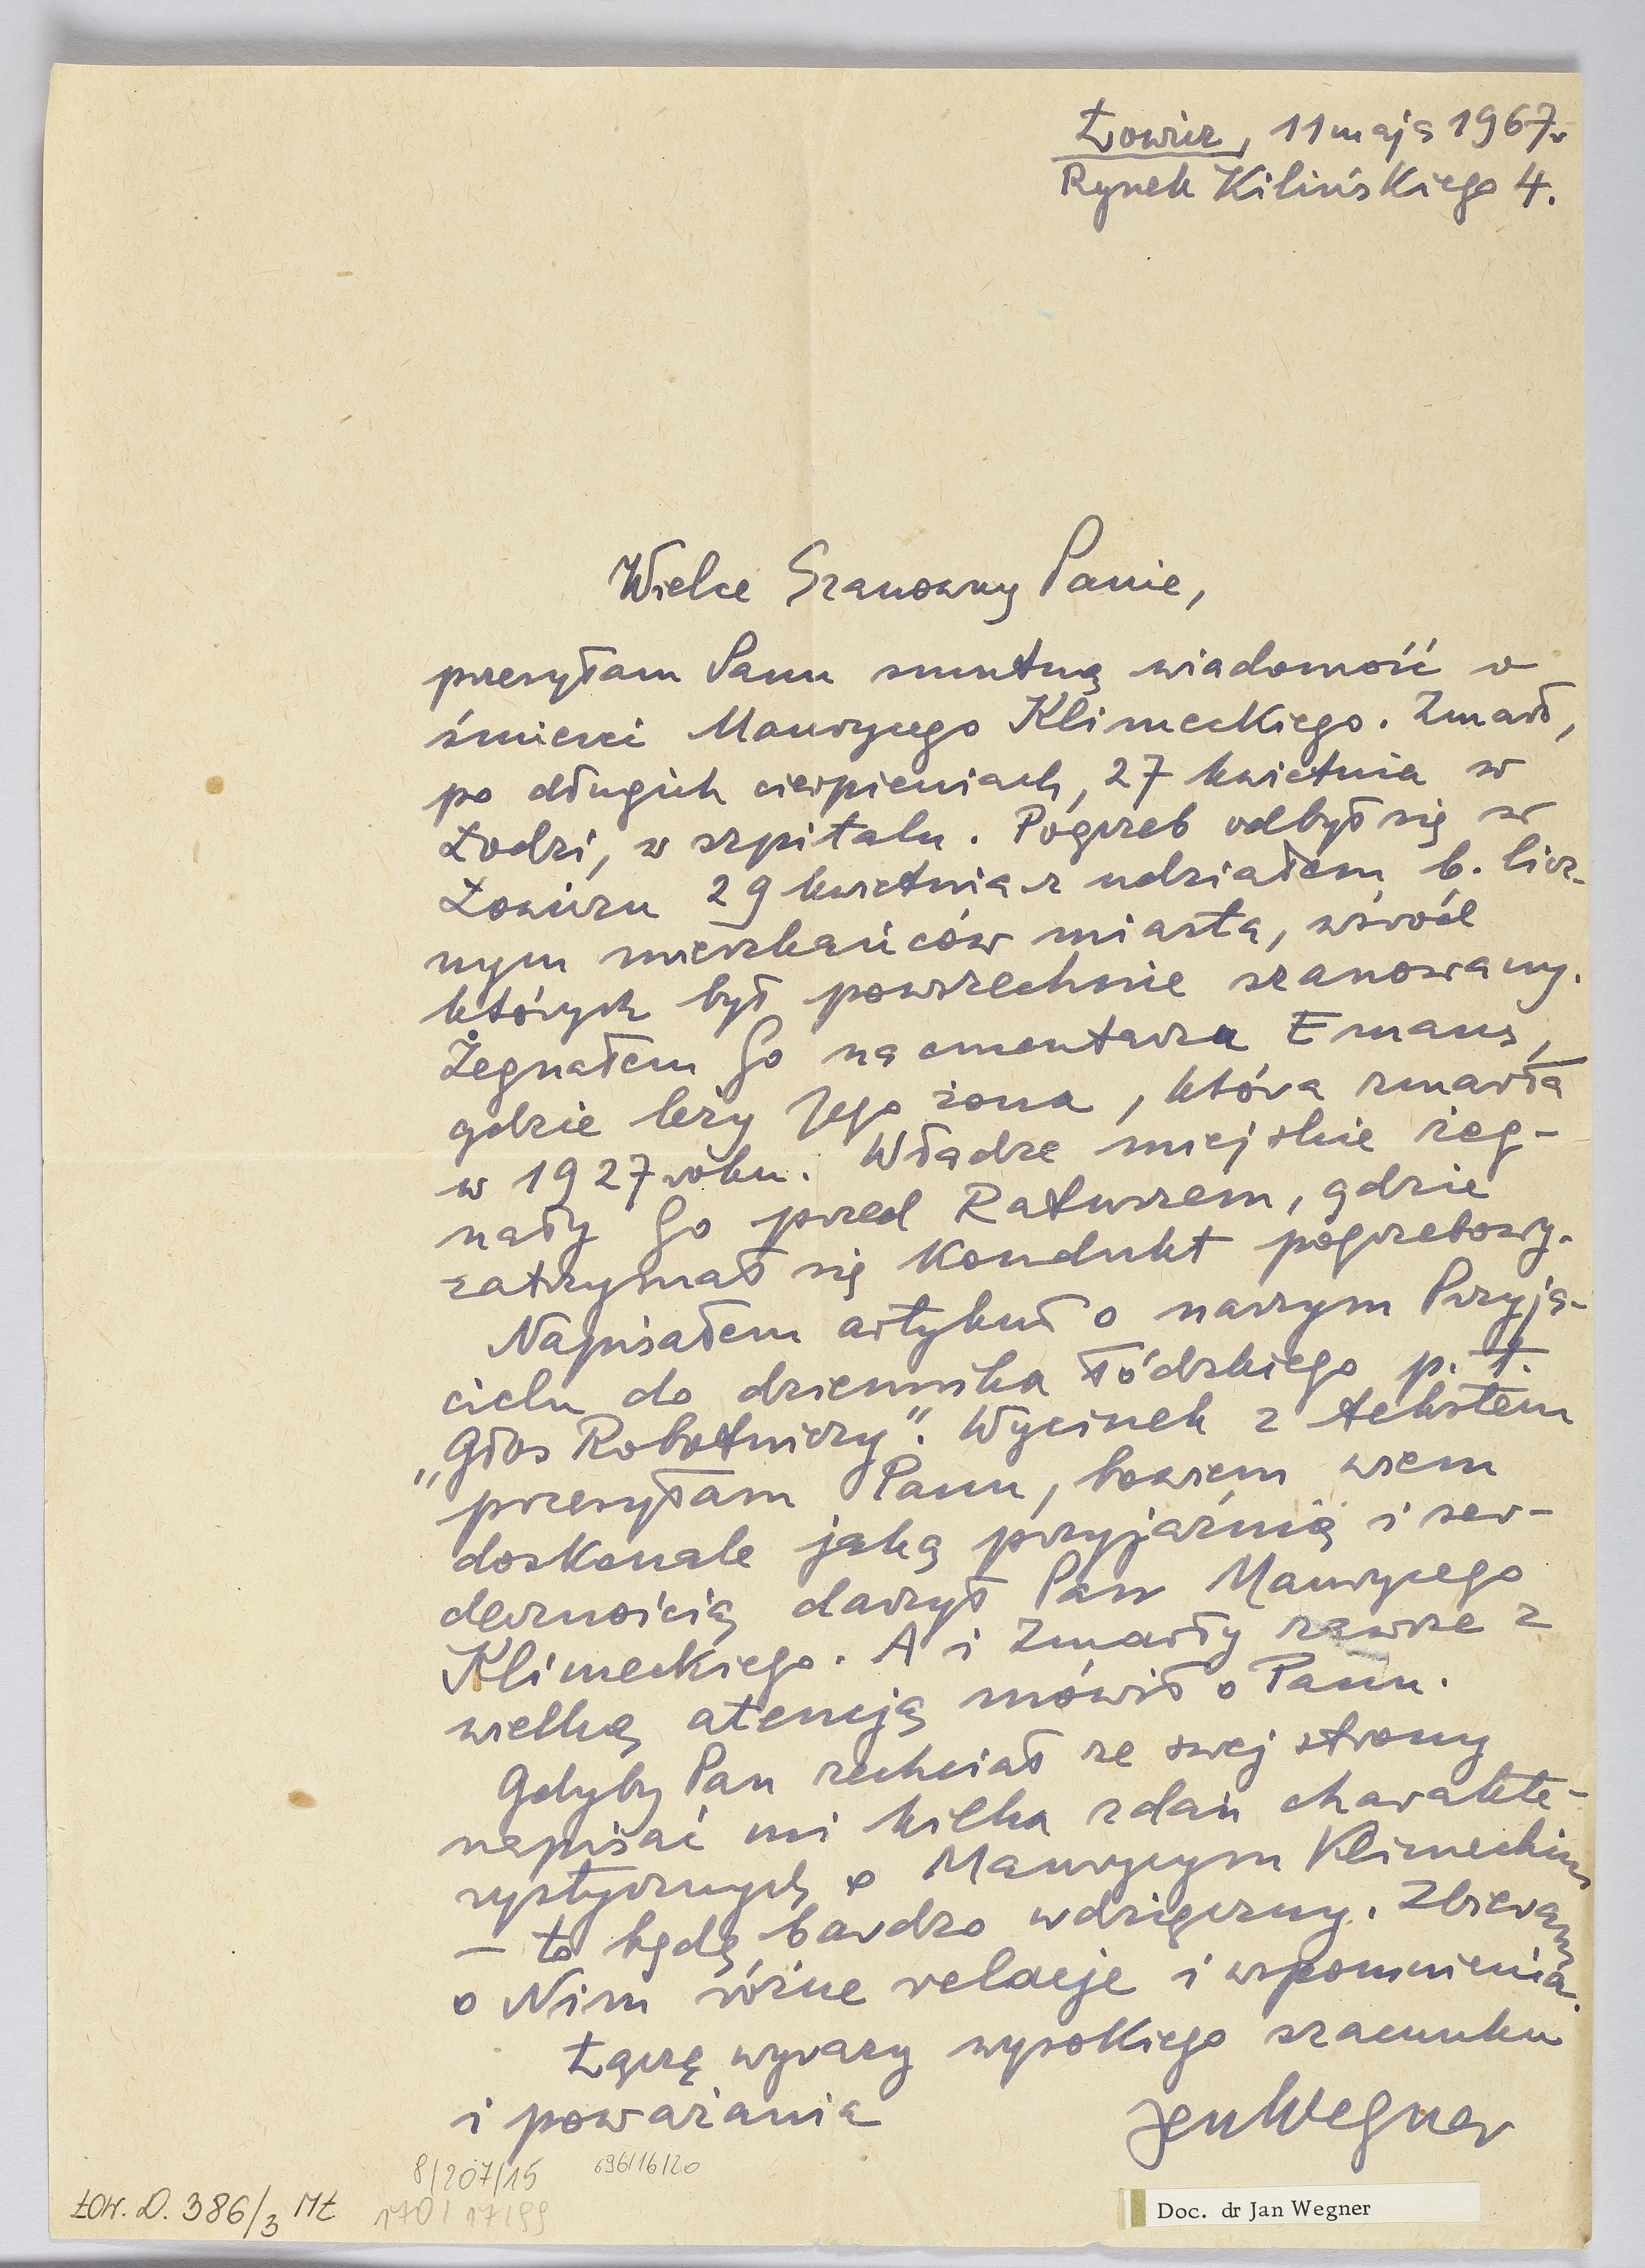 Łowicz, 11 maja 1967 r
Rynek Kilińskiego 4.
Wielce Szanowny Panie,
przesyłam Panu smutną wiadomość o
śmierci Maurycego Klimeckiego. Zmarł,
po długich cierpieniach, 27 kwietnia w
Łodzi, w szpitalu. Pogrzeb odbył się w
Łowiczu 29 kwietnia z udziałem b. licz-
nym mieszkańców miasta, wśród
których był powszechnie szanowany.
Żegnałem Go na cmentarzu Emaus,
gdzie leży Jego żona, która zmarła
w 1927 roku. Władze miejskie żeg-
nały Go przed Ratuszem, gdzie
zatrzymał się kondukt pogrzebowy.
Napisałem artykuł o naszym Przyja-
cielu do dziennika łódzkiego p. t.
„Głos Robotniczy". Wycinek z tekstem
przesyłam Panu, bowiem wiem
doskonale jaką przyjaźnią i ser-
decznością darzył Pan Maurycego
Klimeckiego. A i Zmarły zawsze z
wielką atencją mówił o Panu.
Gdyby Pan zechciał ze swej strony
napisać mi kilka zdań charakte-
rystycznych o Maurycym Klimeckim
– to będę bardzo wdzięczny. Zbieram
o Nim różne relacje i wspomnienia.
Łączę wyrazy wysokiego szacunku
i poważania
Jan Wegner
8/207/15 696/16/20
170/17/99
ŁOW. D. 386/3 MŁ
Doc. dr Jan Wegner